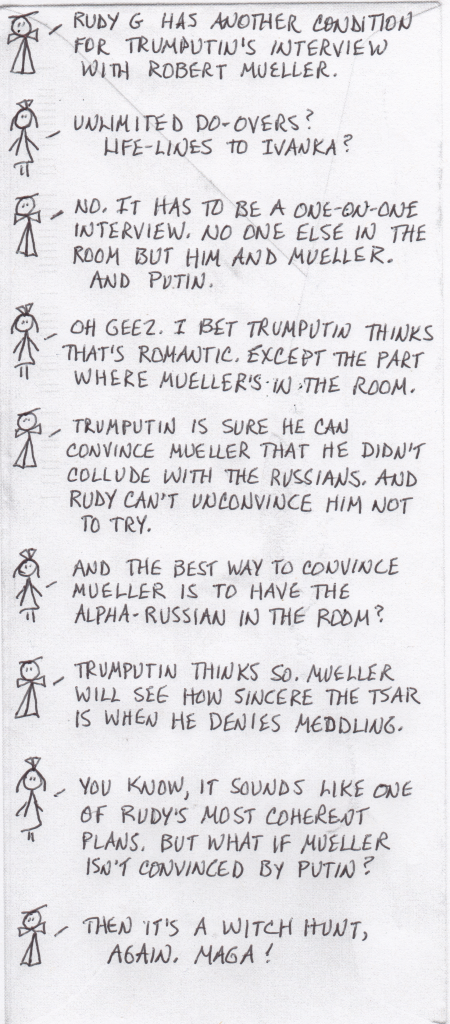 RUDY G HAS ANOTHER CONDITION
FOR TRUMPUTIN'S INTERVIEW
WITH ROBERT MUELLER.
UNLIMITED DO-OVERS?
LIFE-LINES TO IVANKA?
NO. IT HAS TO BE A ONE-ON-ONE
INTERVIEW. NO ONE ELSE IN THE
ROOM BUT HIM AND MUELLER.
AND PUTIN.
OH GEEZ. I BET TRUMPUTIN THINKS
THAT'S ROMANTIC. EXCEPT THE PART
WHERE MUELLER'S IN THE ROOM.
TRUMPUTIN IS SURE HE CAN
CONVINCE MUELLER THAT HE DIDN'T
COLLUDE WITH THE RUSSIANS. AND
RUDY CAN'T UNCONVINCE HIM NOT
TO TRY.
AND THE BEST WAY TO CONVINCE
MUELLER IS TO HAVE THE
ALPHA-RUSSIAN IN THE ROOM?
TRUMPUTIN THINKS SO. MUELLER
WILL SEE HOW SINCERE THE TSAR
IS WHEN HE DENIES MEDDLING.
YOU KNOW, IT SOUNDS LIKE ONE
OF RUDY'S MOST COHERENT
PLANS. BUT WHAT IF MUELLER
ISN'T CONVINCED BY PUTIN?
THEN IT'S A WITCH HUNT,
AGAIN. MAGA!